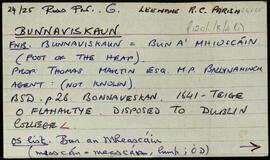 24/25 Ross Par. G. LEENANE R.C. PARISH
BUNNAVISKAUN
ENG. BUNNAVISKAUN = BUN A' MHIOSCÁIN
(FOOT OF THE HEAP).
PROP THOMAS MARTIN ESQ. M.P. BALLYNAHINCH
AGENT: (NOT KNOWN).
BSD. p.26. BONNAVESKAN. 1641 - TEIGE
O FLAHARTYE. DISPOSED TO DUBLIN
COLLEGE
OS List. Bun an Mheascáin
(meascán = lump; ÓD)